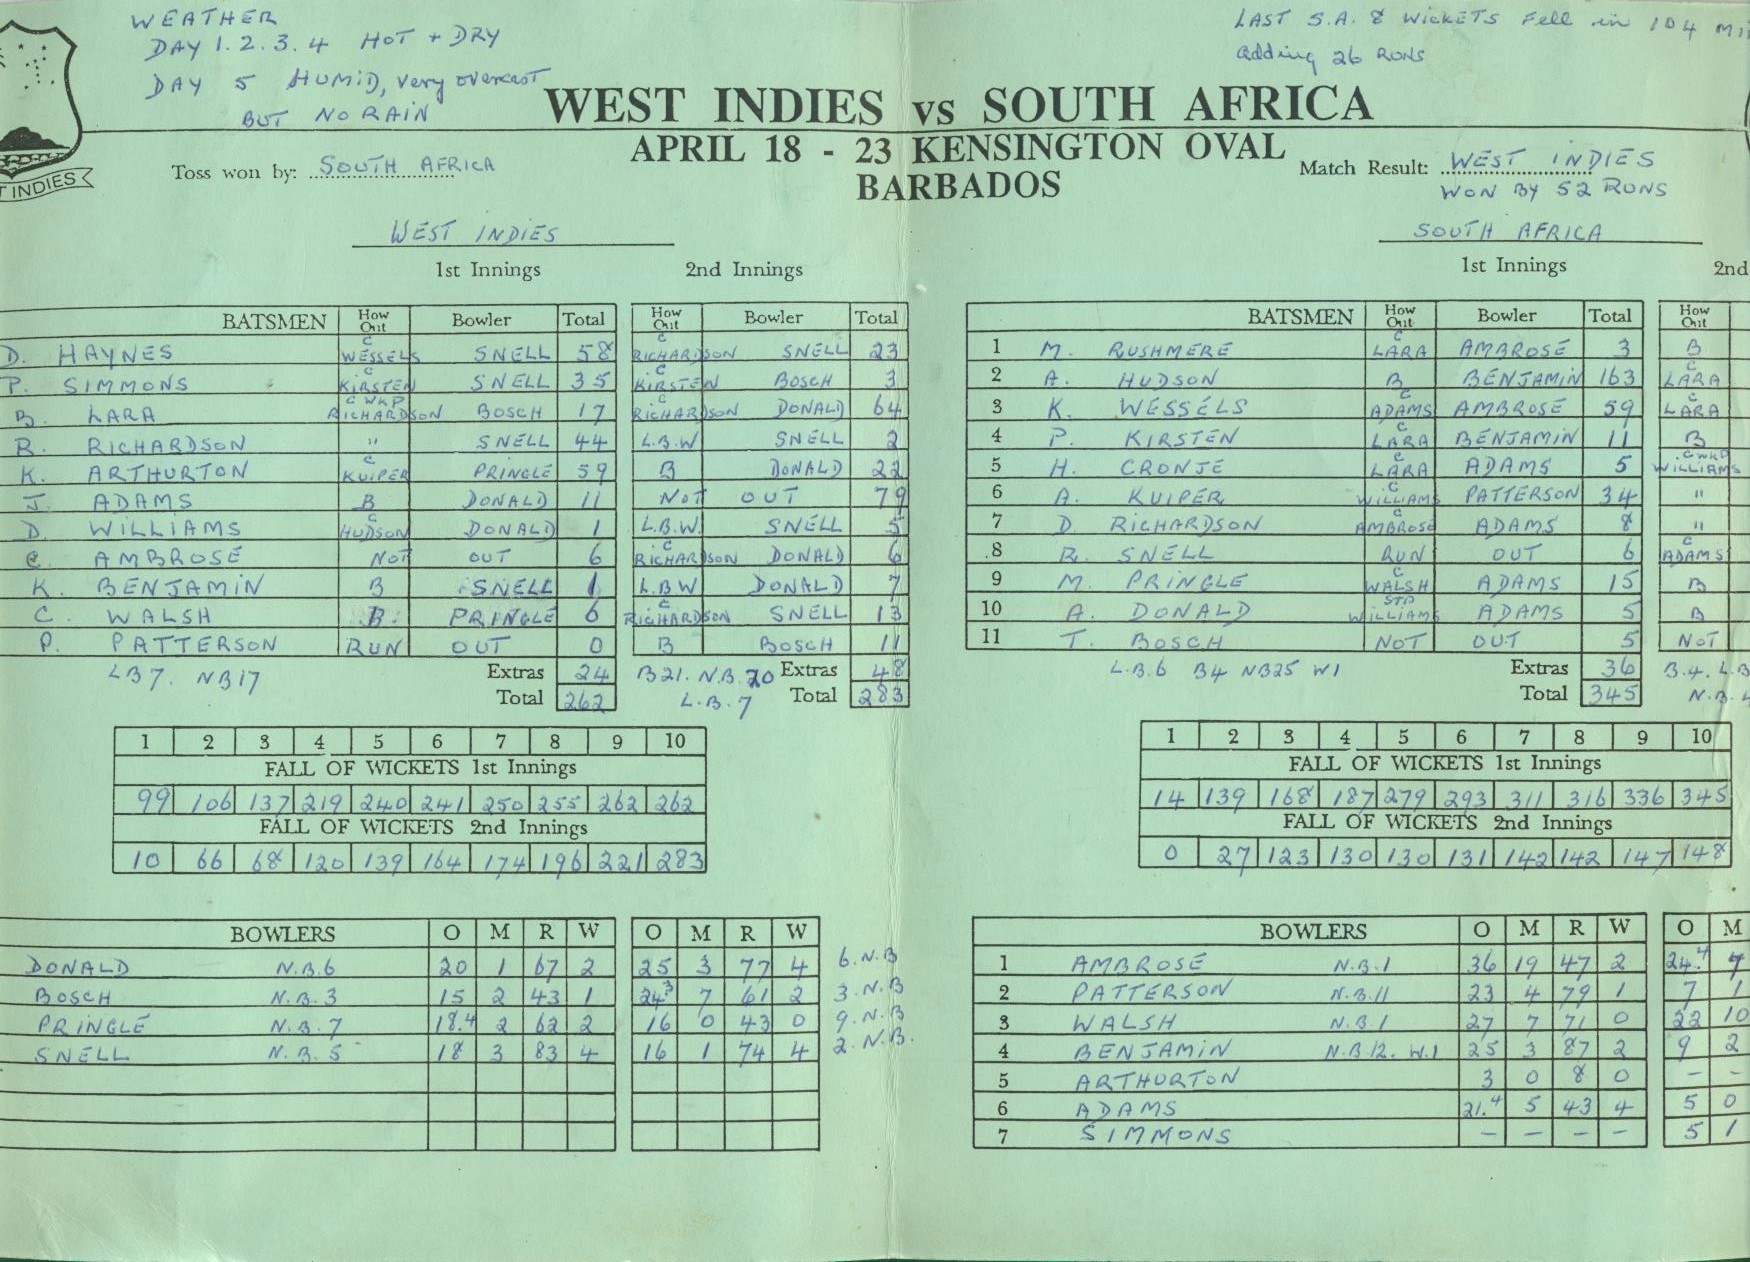 WEATHER
DAY 1.2.3.4 HOT + DRY
DAY 5 HUMID, very overcast
BUT NO RAIN
LAST S.A. 8 WICKETS Fell in 104
adding 26 RUNS
WEST INDIES vs SOUTH AFRICA
APRIL 18 - 23 KENSINGTON OVAL
BARBADOS
INDIES
Toss won by: SOUTH AFRICA
Match Result: WEST INDIES
WON BY 52 RUNS
WEST INDIES
1st Innings 2nd Innings
BATSMEN How Out Bowler Total How Out Bowler Total
D. HAYNES C WESSELS SNELL 58 C RICHARDSON SNELL 23
P. SIMMONS C KIRSTEN SNELL 35 C KIRSTEN BOSCH 3
B. LARA C WKP RICHARDSON BOSCH 17 C RICHARDSON DONALD 64
R. RICHARDSON " SNELL 44 L.B.W SNELL 2
K. ARTHURTON C KUIPER PRINGLE 59 B DONALD 22
J. ADAMS B DONALD 11 NOT OUT 79
D. WILLIAMS C HUDSON DONALD 1 L.B.W. SNELL 5
C. AMBROSE NOT OUT 6 C RICHARDSON DONALD 6
K. BENJAMIN B SNELL 1 L.B.W DONALD 7
C. WALSH B. PRINGLE 6 C RICHARDSON SNELL 13
P. PATTERSON RUN OUT 0 B BOSCH 11
LB7. NB17 Extras 24 B21. N.B.20 Extras 48
Total 262 L.B.7 Total 283
1 2 3 4 5 6 7 8 9 10
FALL OF WICKETS 1st Innings
99 106 137 219 240 241 250 255 262 262
FALL OF WICKETS 2nd Innings
10 66 68 120 139 164 174 196 221 283
BOWLERS O M R W O M R W
DONALD N.B.6 20 1 67 2 25 3 77 4 6.N.B
BOSCH N.B.3 15 2 43 1 24.3 7 61 2 3.N.B
PRINGLE N.B.7 18.4 2 62 2 16 0 43 0 9.N.B
SNELL N.B.5 18 3 83 4 16 1 74 4 2.N.B.
SOUTH AFRICA
1st Innings 2nd
BATSMEN How Out Bowler Total How Out
1 M. RUSHMERE C LARA AMBROSE 3 B
2 A. HUDSON B BENJAMIN 163 C LARA
3 K. WESSELS C ADAMS AMBROSE 59 C LARA
4 P. KIRSTEN C LARA BENJAMIN 11 B
5 H. CRONJE C LARA ADAMS 5 C WKP WILLIAMS
6 A. KUIPER C WILLIAMS PATTERSON 34 "
7 D. RICHARDSON C AMBROSE ADAMS 8 "
8 R. SNELL RUN OUT 6 C ADAMS
9 M. PRINGLE C WALSH ADAMS 15 B
10 A. DONALD STP WILLIAMS ADAMS 5 B
11 T. BOSCH NOT OUT 5 NOT
L.B.6 B4 NB25 W1 Extras 36 B.4. L.B
Total 345 N.B.4
1 2 3 4 5 6 7 8 9 10
FALL OF WICKETS 1st Innings
14 139 168 187 279 293 311 316 336 345
FALL OF WICKETS 2nd Innings
0 27 123 130 130 131 142 142 147 148
BOWLERS O M R W O M
1 AMBROSE N.B.1 36 19 47 2 24.4 7
2 PATTERSON N.B.11 23 4 79 1 7 1
3 WALSH N.B.1 27 7 71 0 22 10
4 BENJAMIN N.B.12. W.1 25 3 87 2 9 2
5 ARTHURTON 3 0 8 0 - -
6 ADAMS 21.4 5 43 4 5 0
7 SIMMONS - - - - 5 1